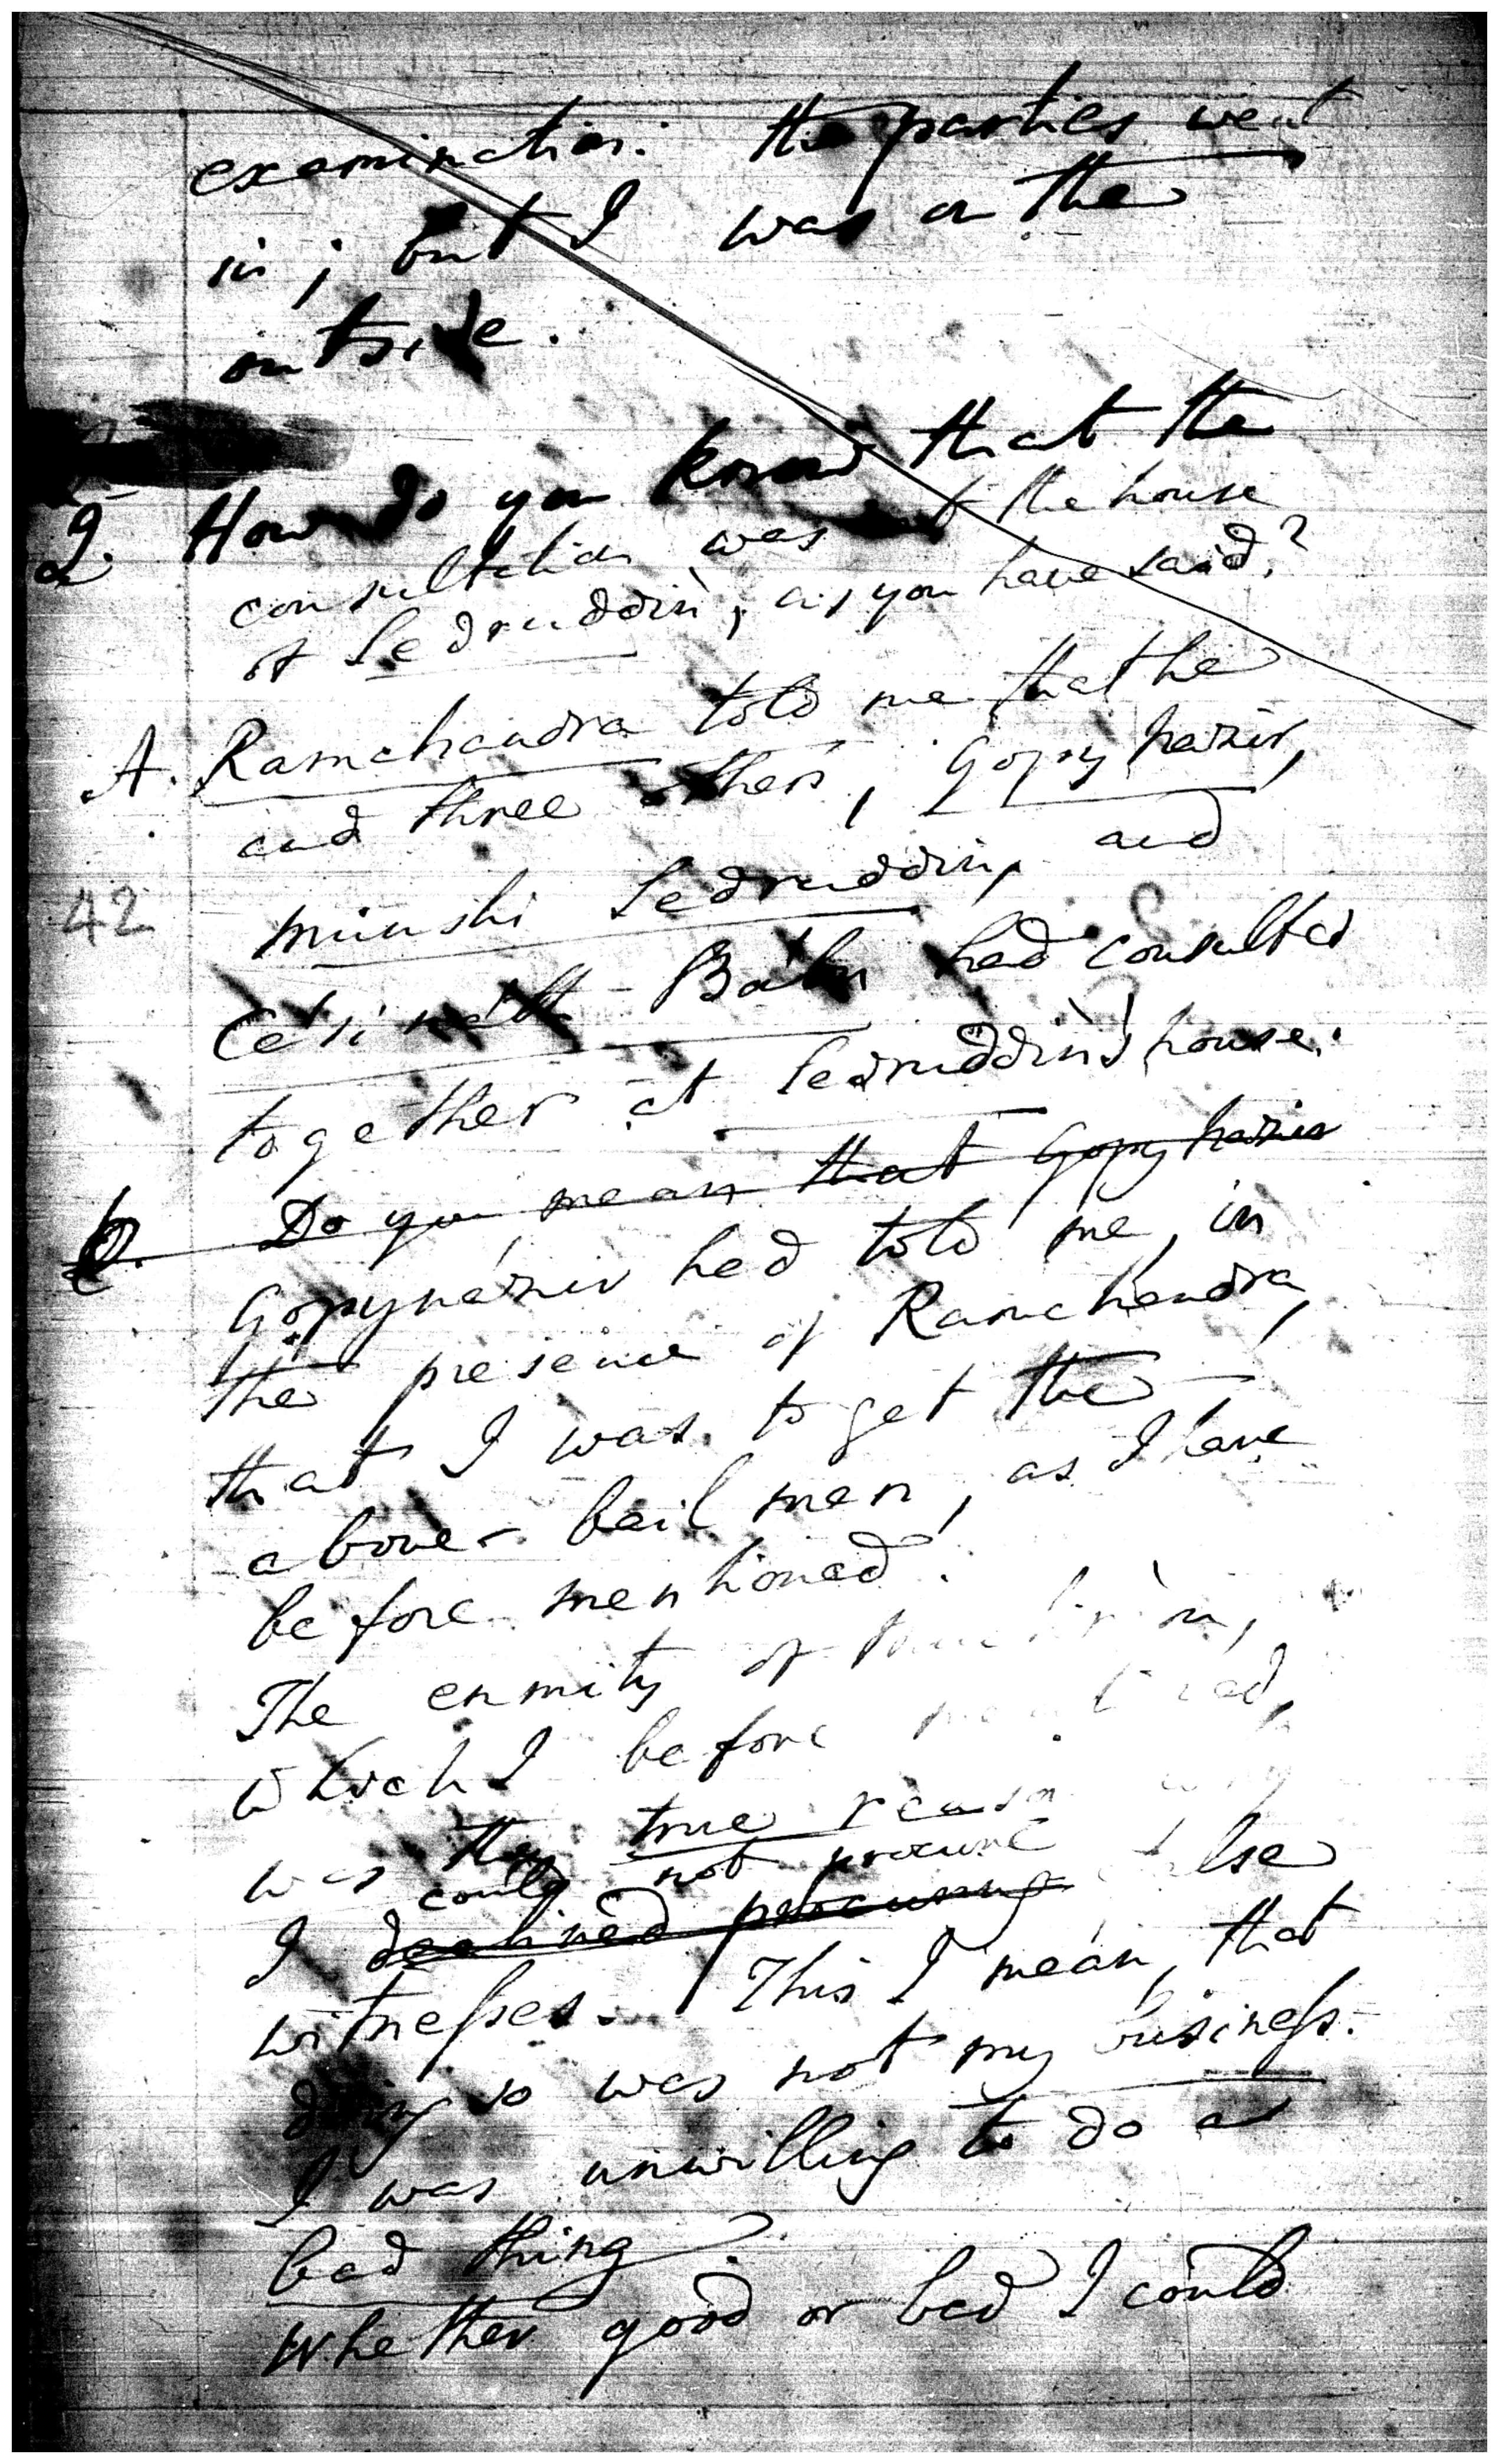 examination. the parties went
in; but I was on the
outside.
Q. How do you know that the
consultation was at the house
of Sedruddin, as you have said?
A. Ramchandra told me that he
and three others, Gopy názir,
munshi Sedruddin, and
42
Cási nátt - Bábu had consulted
together at Sedruddin's house.
Q. Do you mean that Gopy názir
Gopynázir had told me, in
the presence of Ramchandra,
that I was to get the
above - bail men, as I have
before mentioned.
The enmity of
which I before mentioned,
was the true reason why
could not procure
I declined procuring false
witnesses. This I mean, that
doing so was not my business.
I was unwilling to do a
bad thing?
Whether good or bad I could